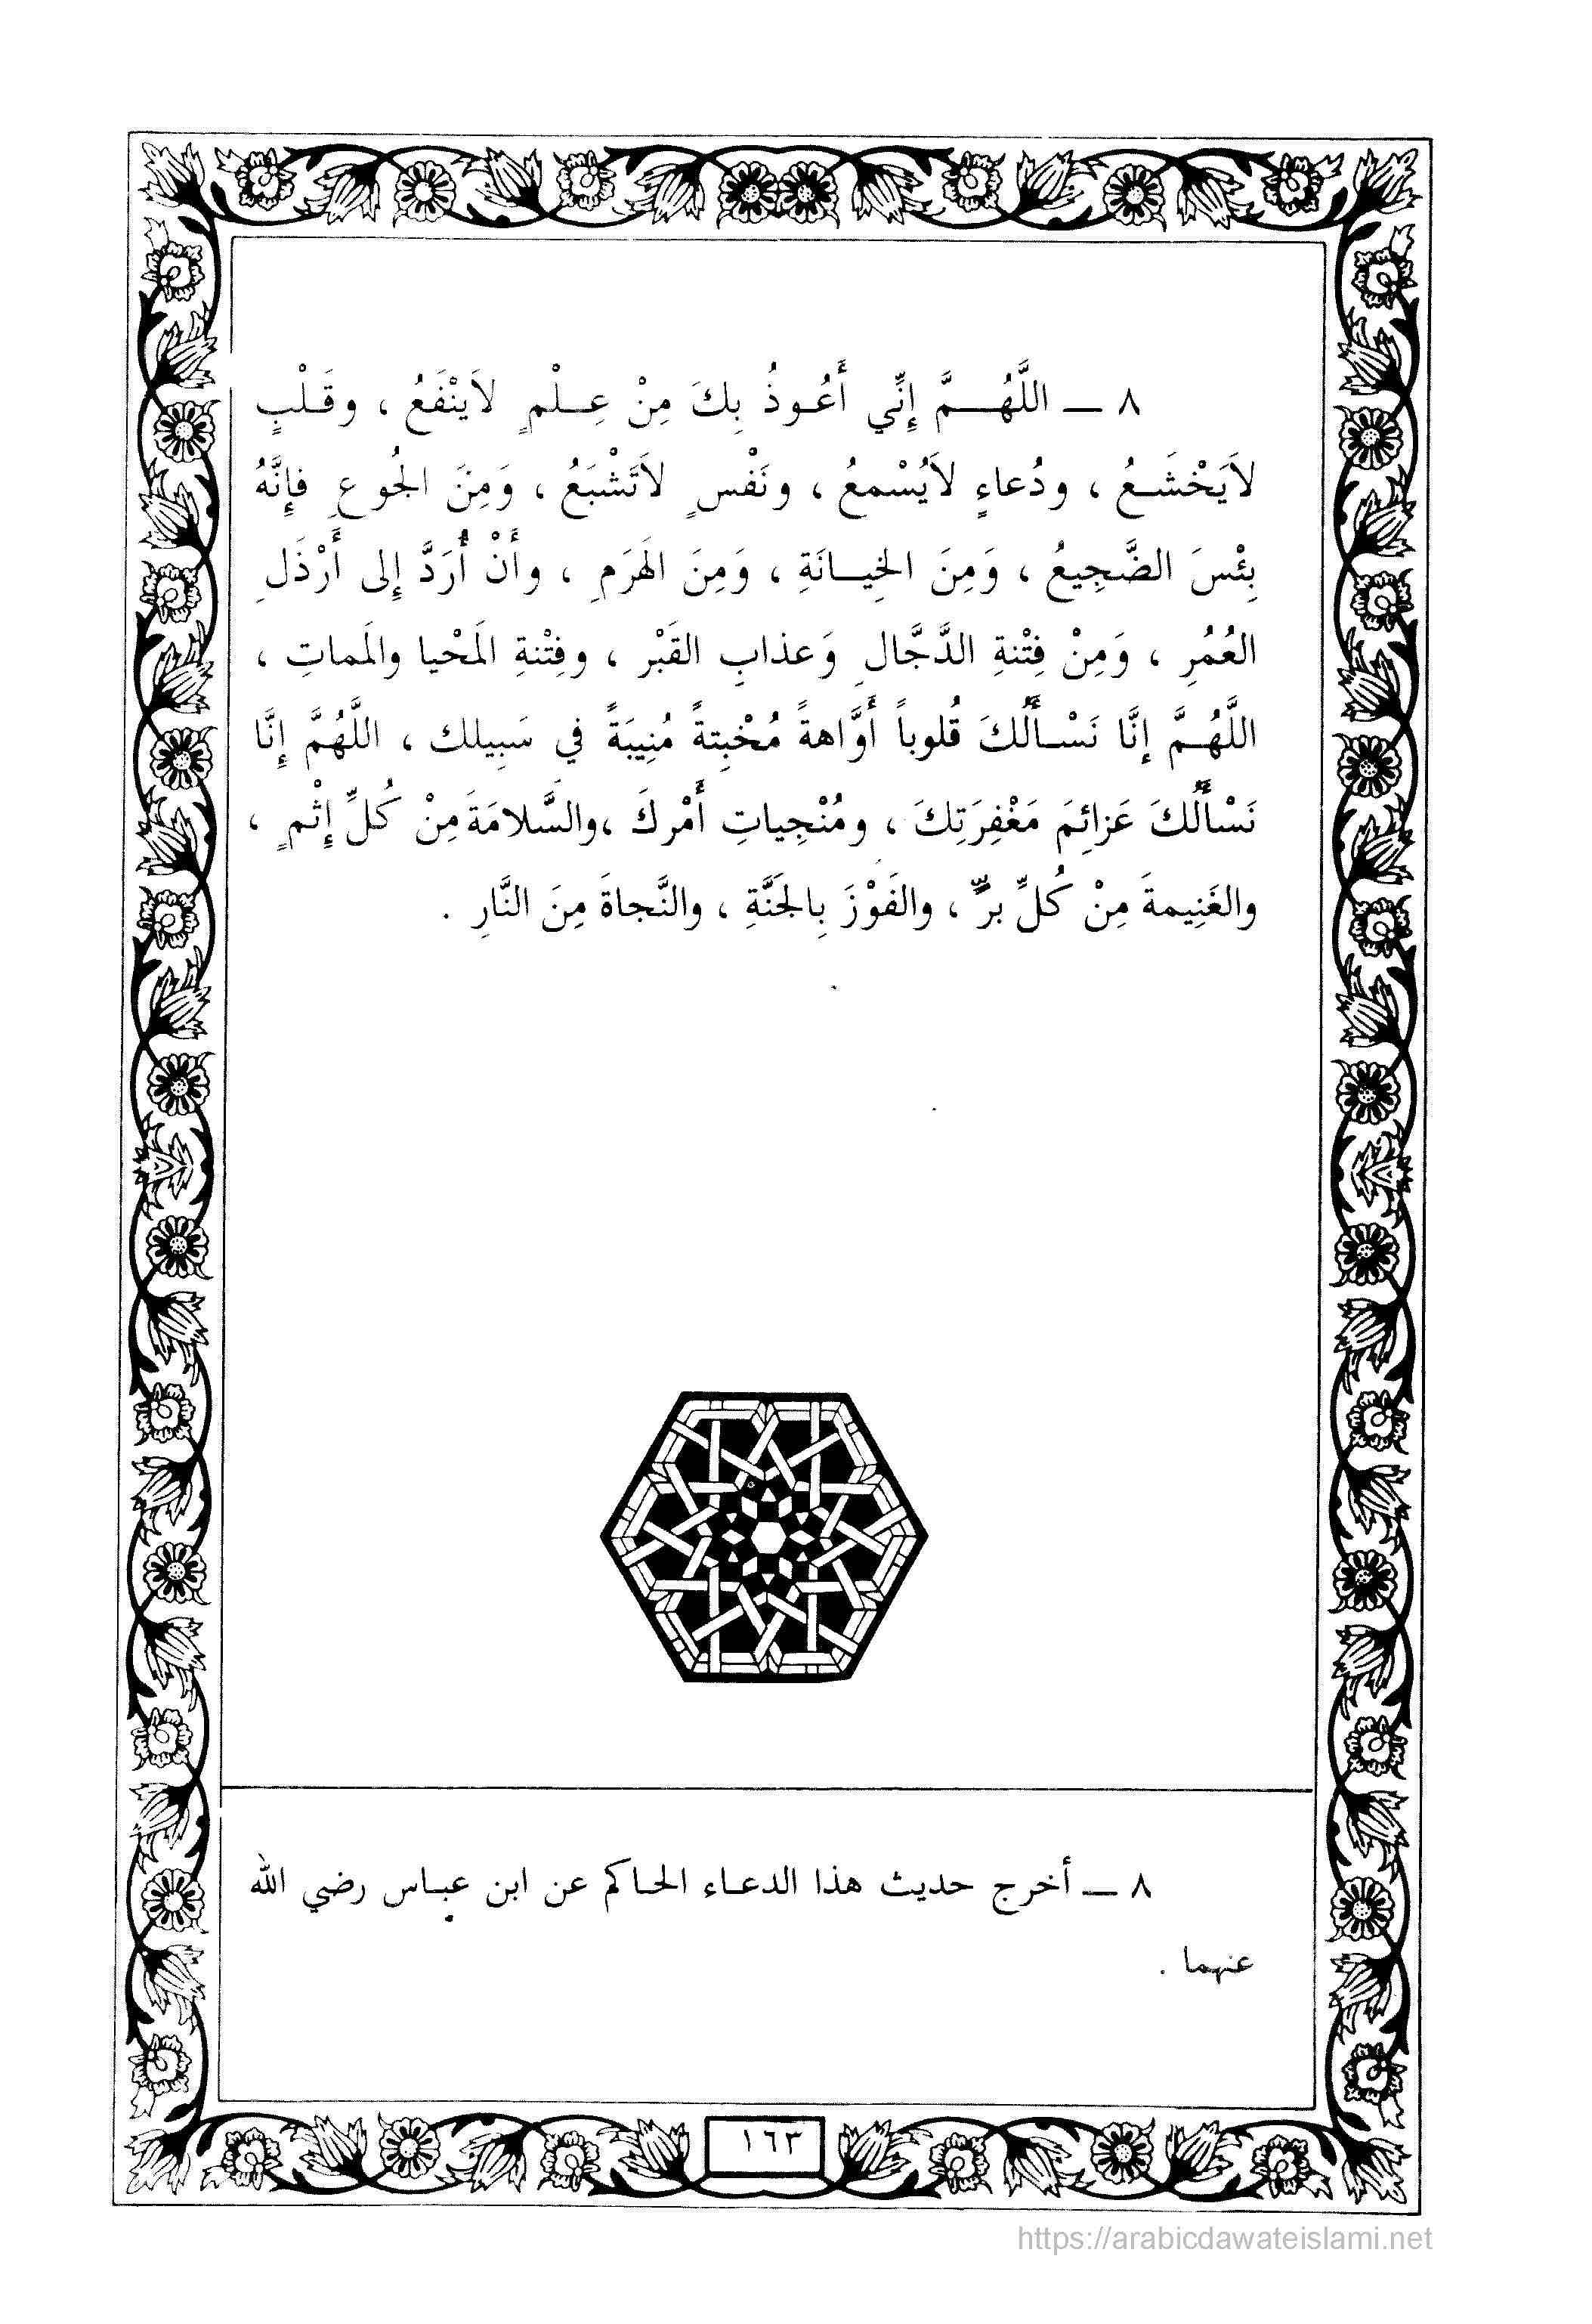 ٨ ــ اللَّهُــمَّ إِنِّي أَعُـوذُ بِكَ مِنْ عِـلْمٍ لاَيَنْفَعُ ، وقَـلْبٍ
لاَيَخْشَـعُ ، ودُعاءٍ لاَيُسْمعُ ، ونَفْسٍ لاَتَشْبَعُ ، وَمِنَ الجُوعِ فإِنَّهُ
بِئْسَ الضَّجِيعُ ، وَمِنَ الخِيـانَةِ ، وَمِنَ الهَرَمِ ، وأَنْ أُرَدَّ إِلى أَرْذَلِ
العُمُرِ ، وَمِنْ فِتْنةِ الدَّجَّالِ وَعذابِ القَبْرِ ، وفِتْنةِ المَحْيا والمَماتِ ،
اللَّهُـمَّ إنَّا نَسْـأَلُكَ قُلوباً أَوَّاهةً مُخْبِتةً مُنِيبَةً في سَبِيلك ، اللَّهُمَّ إِنَّا
نَسْأَلُكَ عَزائِمَ مَغْفِرَتِكَ ، ومُنْجِياتِ أَمْركَ ،والسَّلامَةَ مِنْ كُلِّ إِثْمٍ ،
والغَنِيمةَ مِنْ كُلِّ برٍّ ، والفَوْزَ بِالجَنَّةِ ، والنَّجاةَ مِنَ النَّارِ .
٨ ــ أخرج حديث هذا الدعـاء الحـاكم عن ابن عبـاس رضي الله
عنهما .
١٦٣
https://arabicdawateislami.net